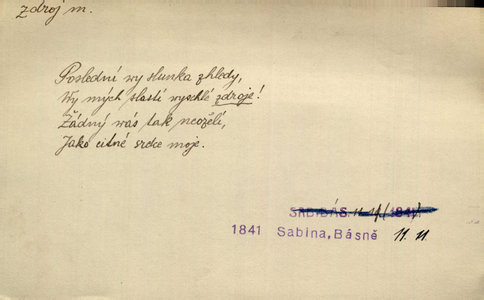 zdroj m.
Poslední wy slunka zhledy,
Wy mých slastí wyschlé zdroje!
Žádný wás tak neoželí,
Jako citné srdce moje.
SAB.BÁS. 11. 11 (1841)
1841 Sabina, Básně 11. 11.